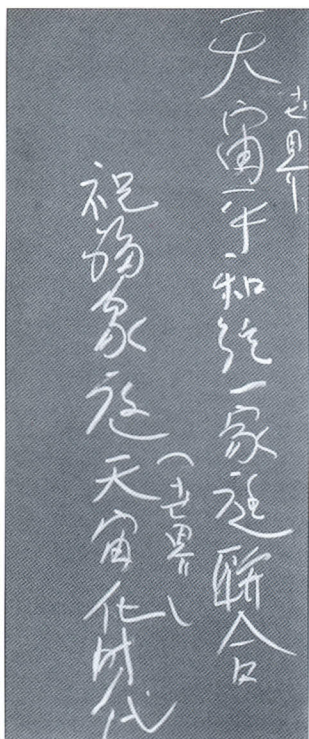 天宙平和統一家庭聯合
世界
祝福家庭天宙化時代
(世界)